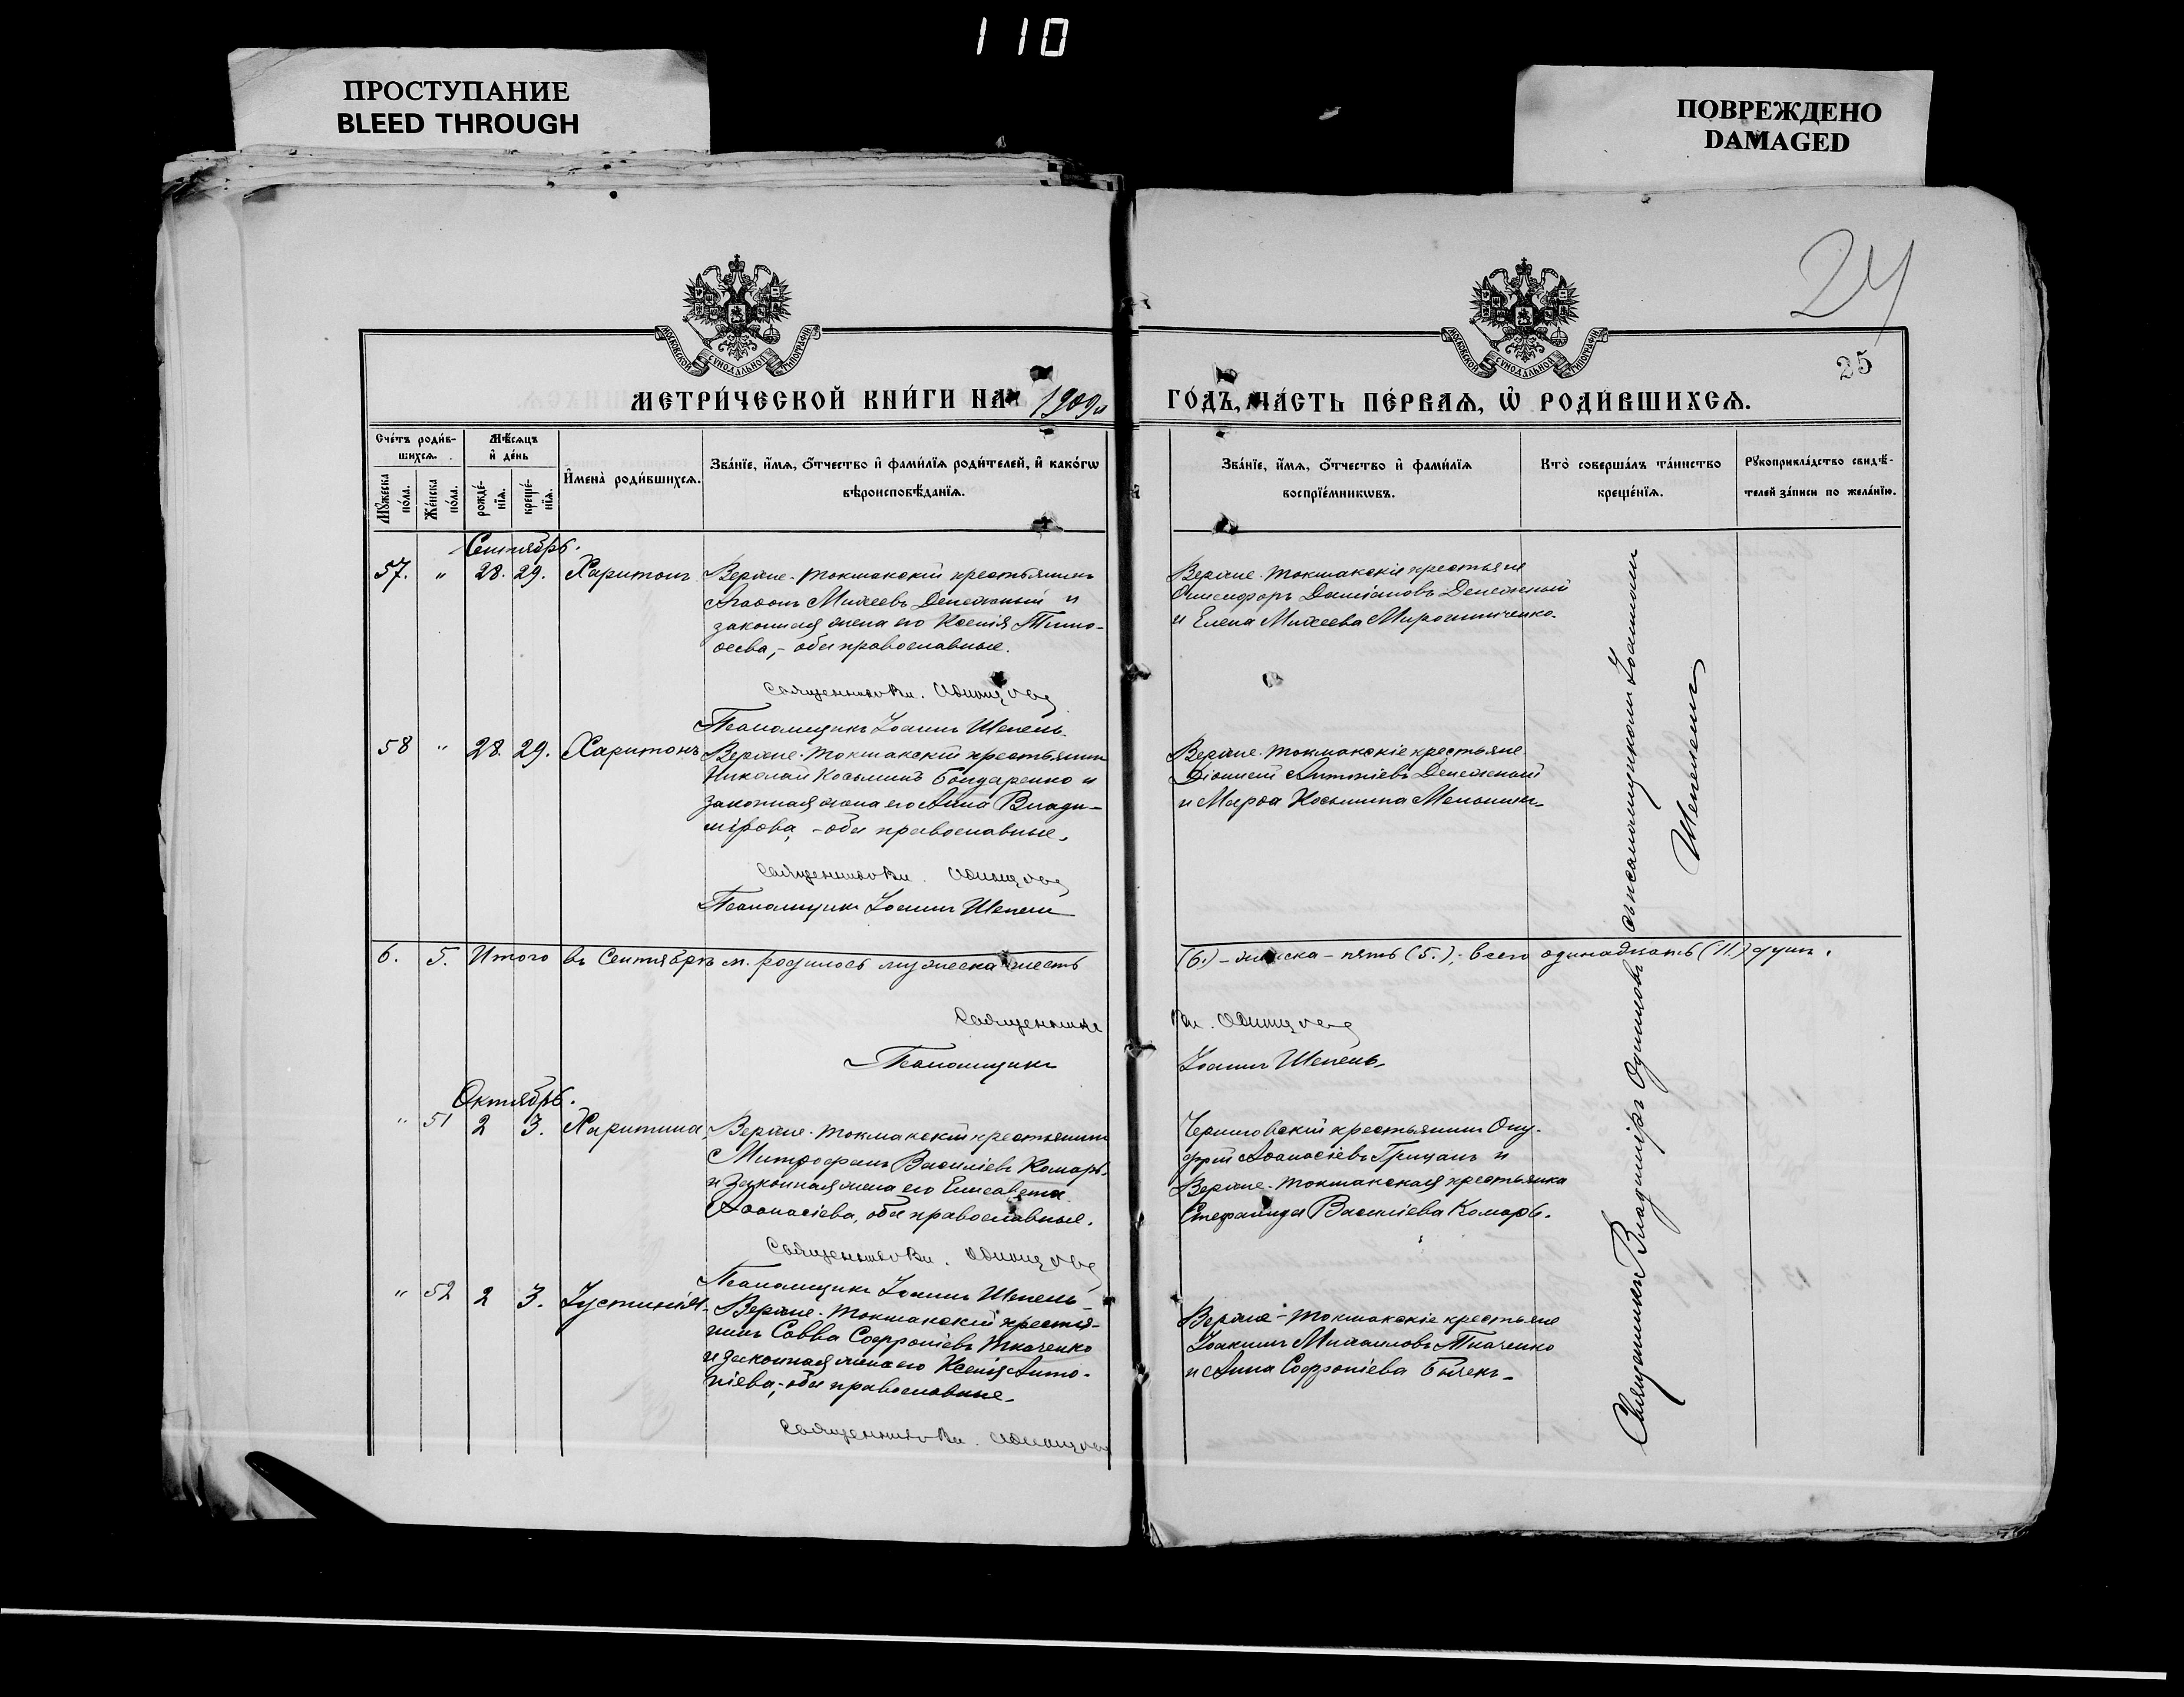 110
ПРОСТУПАНИЕ
BLEED THROUGH
ПОВРЕЖДЕНО
DAMAGED
24
25
МОСКОВСКОЙ СѴНОДАЛЬНОЙ ТИПОГРАФІИ
МОСКОВСКОЙ СѴНОДАЛЬНОЙ ТИПОГРАФІИ
МЕТРИ́ЧЕСКОЙ КНИ́ГИ НА 1909й
ГО́ДЪ, ЧА́СТЬ ПЕ́РВАѦ, Ѡ҆ РОДИ́ВШИХСѦ.
Сче́тъ роди́в-
шихсѧ.
Мꙋ́жеска по́ла.
Же́нска по́ла.
Мѣ́сѧцъ
и҆ де́нь
рожде́-
нїѧ.
креще́-
нїѧ.
И҆мена̀ роди́вшихсѧ.
Зва́нїе, и҆́мѧ, ѻ҆́тчество и҆ фами́лїѧ роди́телей, и҆ како́гѡ
вѣроисповѣ́данїѧ.
Зва́нїе, и҆́мѧ, ѻ҆́тчество и҆ фами́лїѧ
воспрїе́мникѡвъ.
Кто̀ соверша́лъ та́инство
креще́нїѧ.
Рꙋкоприкла́дство свидѣ́-
телей за́писи по жела́нїю.
Сентябрь.
57. " 28. 29. Харитонъ
Верхне-Токмакскій крестьянинъ
Агаѳонъ Михеевъ Денежный и
законная жена его Ксенія Тимо-
ѳеева, - оба православные.
Священникъ Вл. Одинцовъ
Псаломщикъ Іоаннъ Шепель
Верхне-Токмакскіе крестьяне
Онисифоръ Даміановъ Денежный
и Елена Михеева Мирошниченко.
58 " 28. 29. Харитонъ
Верхне-Токмакскій крестьянинъ
Николай Косьминъ Бондаренко и
законная жена его Анна Влади-
мірова, - оба православные.
Священникъ Вл. Одинцовъ
Псаломщикъ Іоаннъ Шепель
Верхне-Токмакскіе крестьяне
Діонисій Антоніевъ Денежный
и Марѳа Косьмина
6. 5. Итого въ Сентябрѣ м. родилось мужеска шесть
(6.) - женска - пять (5.); всего одинадцать (11.) душъ.
Священникъ
Вл. Одинцовъ
Псаломщикъ
Іоаннъ Шепель
Октябрь.
" 51 2 3. Харитина,
Верхне-Токмакскій крестьянинъ
Митрофанъ Василіевъ Комаръ
и законная жена его Елисавета
Аѳанасіева, оба православные.
Священникъ Вл. Одинцовъ
Псаломщикъ Іоаннъ Шепель
Черниговскій крестьянинъ Ону-
фрій Аѳанасіевъ Грицанъ и
Верхне-Токмакская крестьянка
Стефанида Василіева Комаръ.
" 52 2 3. Іустинія
Верхне-Токмакскій крестья-
нинъ Савва Софроніевъ Ткаченко
и законная жена его Ксенія Анто-
ніева, - оба православные.
Священникъ Вл. Одинцовъ
Верхне-Токмакскіе крестьяне
Іоакимъ Михаиловъ Ткаченко
и Анна Софроніева
Священникъ Владиміръ Одинцовъ съ псаломщикомъ Іоанномъ
Шепелемъ